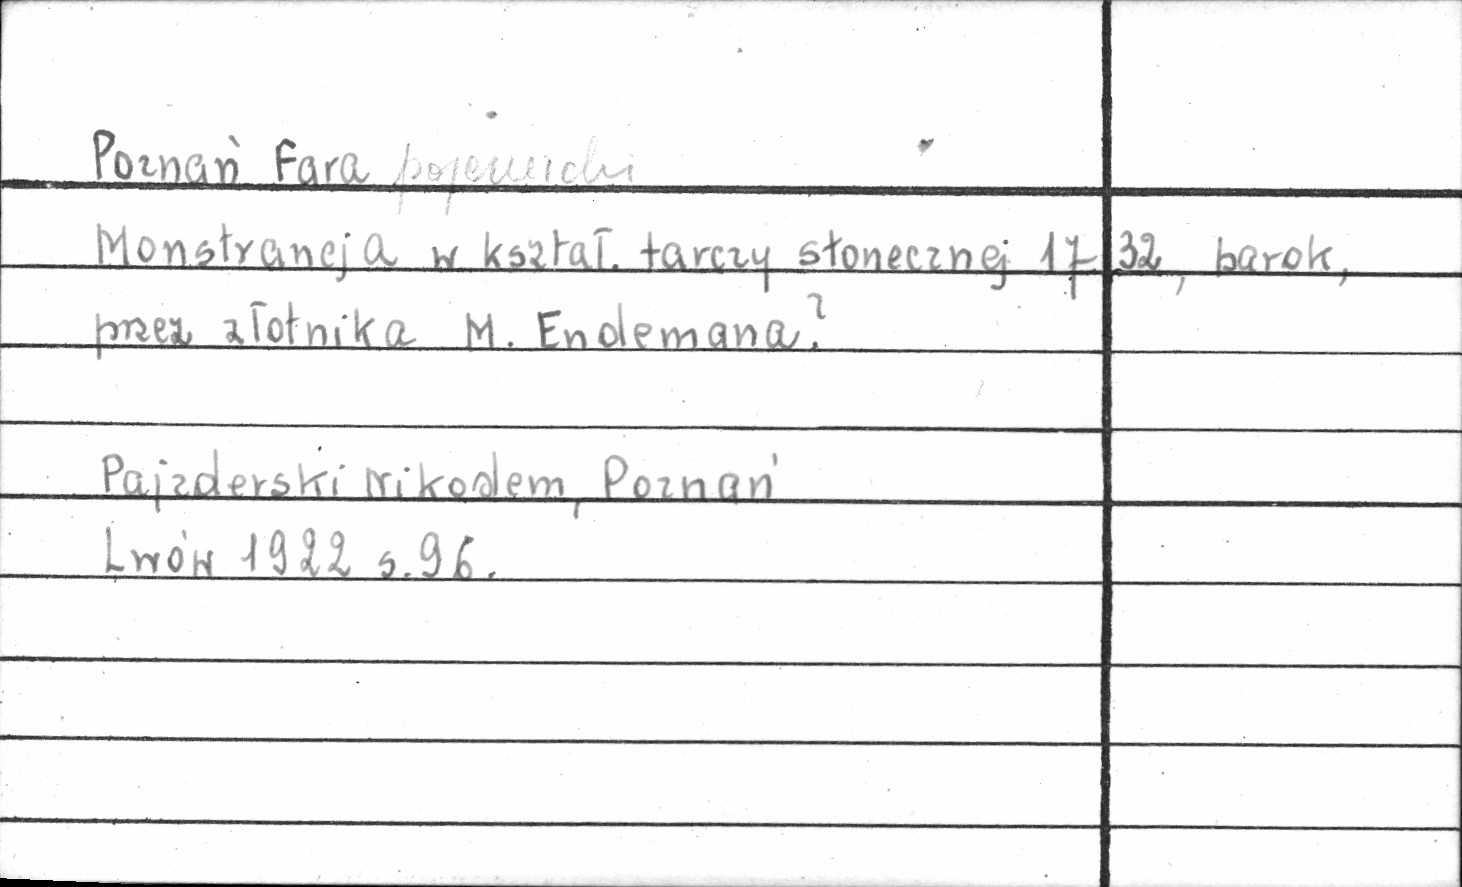 Poznań Fara pojezuicki
Monstrancja w kształ. tarczy słonecznej 1732, barok,
przez złotnika M. Endemana?
Pajzderski Nikodem, Poznań
Lwów 1922 s. 96.